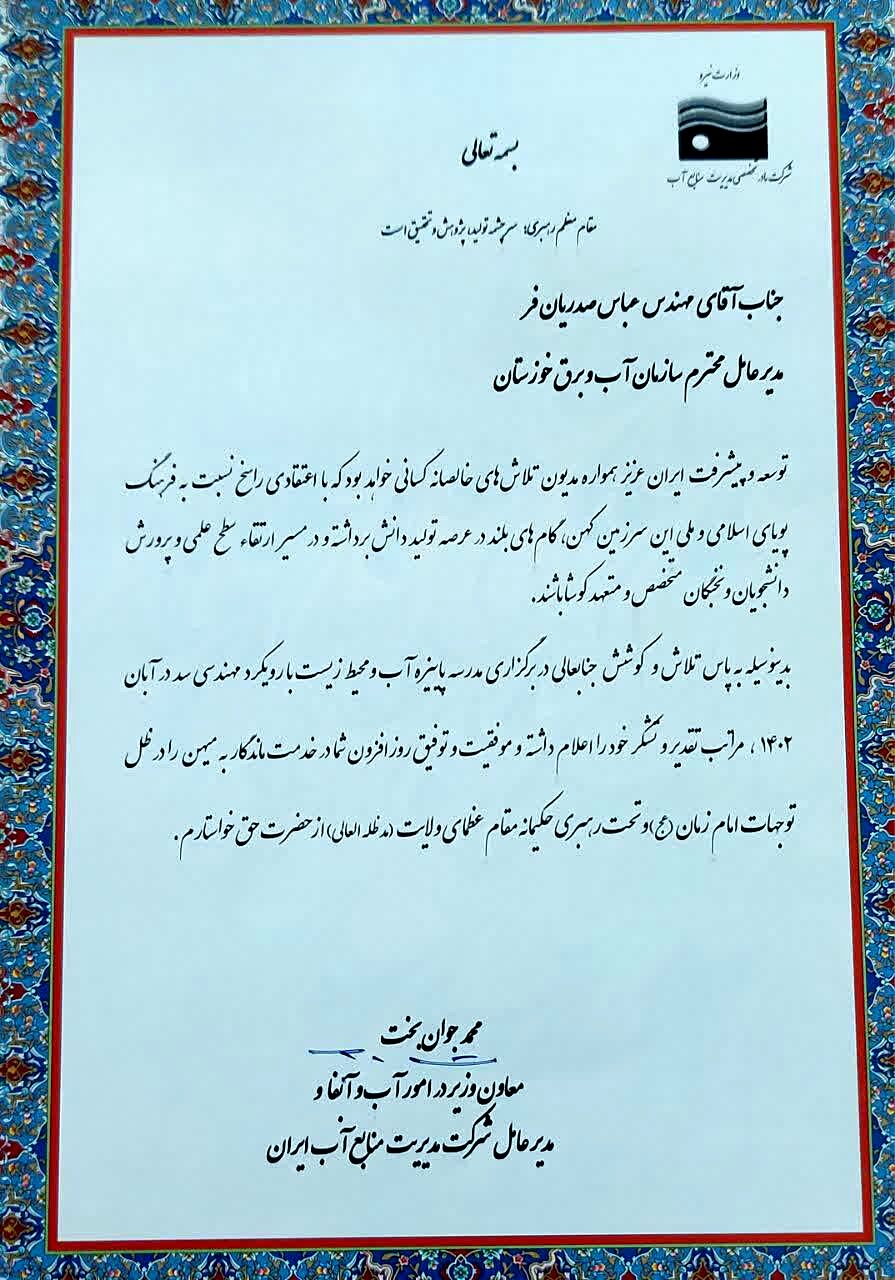 وزارت نیرو
شرکت مادر تخصصی مدیریت منابع آب
بسمه تعالی
مقام معظم رهبری: سرچشمه تولید، پژوهش و تحقیق است
جناب آقای مهندس عباس صدریان فر
مدیر عامل محترم سازمان آب و برق خوزستان
توسعه و پیشرفت ایران عزیز همواره مدیون تلاش های خالصانه کسانی خواهد بود که با اعتقادی راسخ نسبت به فرهنگ
پویای اسلامی و ملی این سرزمین کهن، گام های بلند در عرصه تولید دانش برداشته و در مسیر ارتقاء سطح علمی و پرورش
دانشجویان و نخبگان متخصص و متعهد کوشا باشند.
بدینوسیله به پاس تلاش و کوشش جنابعالی در برگزاری مدرسه پاییزه آب و محیط زیست با رویکرد مهندسی سد در آبان
۱۴۰۲، مراتب تقدیر و تشکر خود را اعلام داشته و موفقیت و توفیق روز افزون شما در خدمت ماندگار به میهن را در ظل
توجهات امام زمان (عج) و تحت رهبری حکیمانه مقام عظمای ولایت (مد ظله العالی) از حضرت حق خواستارم.
محمد جوان بخت
معاون وزیر در امور آب و آبفا و
مدیر عامل شرکت مدیریت منابع آب ایران